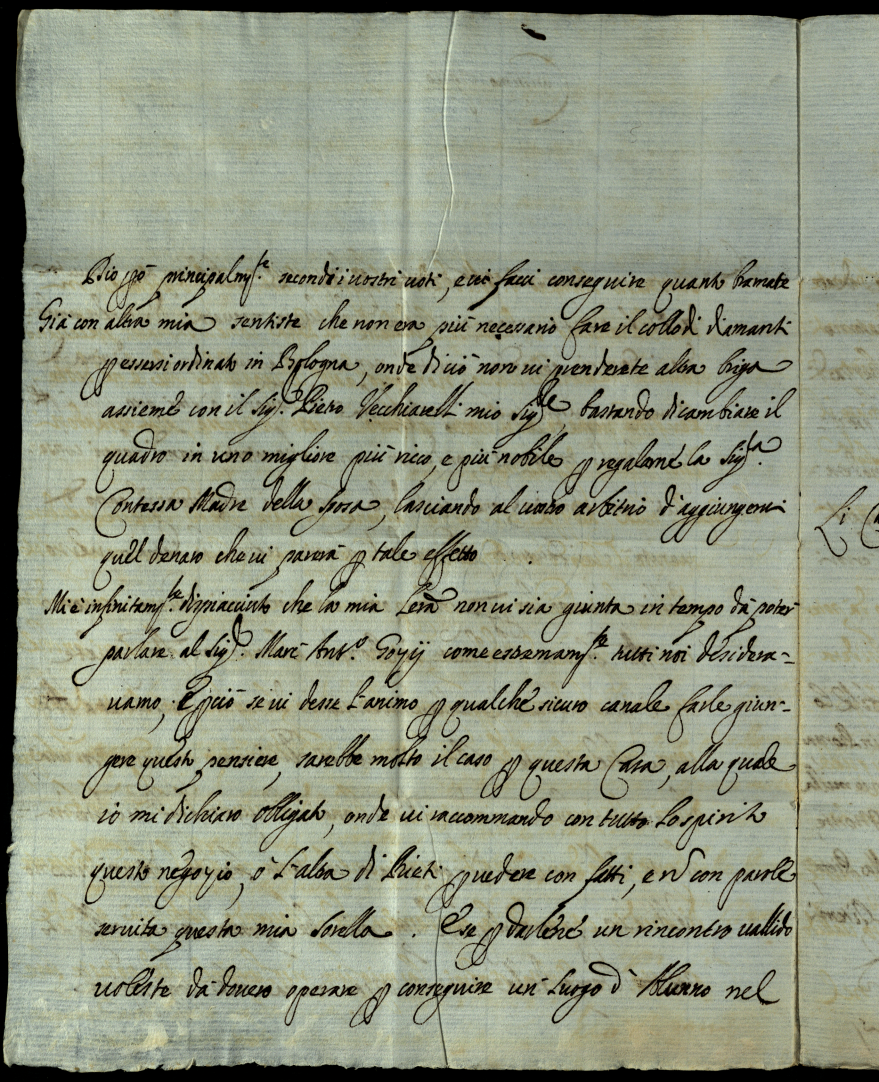 Dio pò principalmte. secondi i vostri voti, e vi facci conseguire quanto bramate
Già con altra mia sentiste che non era più necesario fare il collo di diamanti
p essersi ordinato in Bologna, onde di ciò non vi prenderete altra briga
assieme con il Sigr. Pietro Vecchiarelli mio Sigre, bastando di cambiare il
quadro in uno migliore più ricco, e più nobile p regalarne la Siga.
Contessa Madre della sposa, lasciando al vostro arbitrio d'aggiungervi
quel denaro che vi parerà p tale effetto
Mi è infinitamte. dispiacciuto che la mia Lera non vi sia giunta in tempo da poter
parlare al Sigr. Marc Anto. Gozij come estremamte. tutti noi desidera-
vamo; E pciò se vi desse l'animo p qualche sicuro canale farle giun-
gere questo pensiere, sarebbe molto il caso p questa Casa, alla quale
io mi dichiaro obligato, onde vi raccommando con tutto lo spirito
questo negozio, ò l'altra di Rieti p vedere con fatti, e nō con parole
servita questa mia sorella. E se p darlene un rincontro vallido
voleste da dovero operare p conseguire un Luogo d'Alunno nel
Li